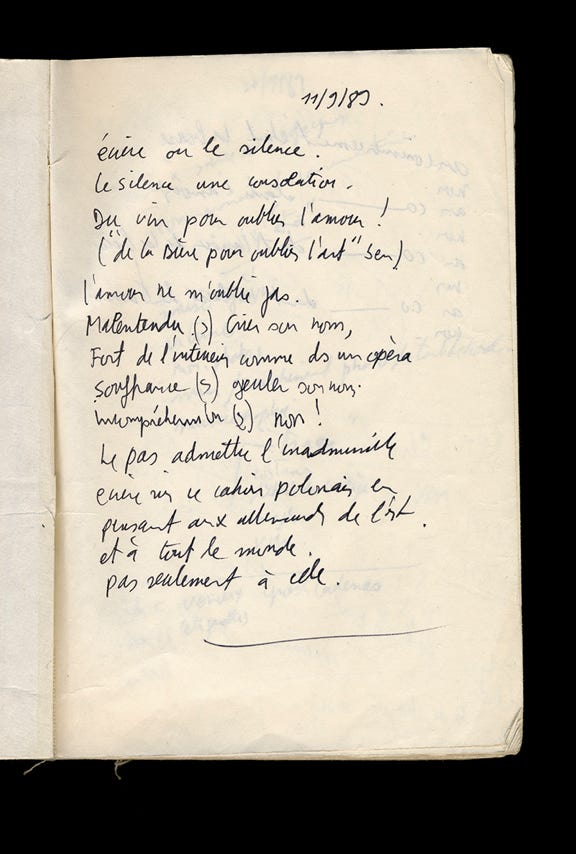 11/9/89.
écrire ou le silence.
le silence une consolation.
Du vin pour oublier l'amour !
("de la Bière pour oublier l'art" Ben)
l'amour ne m'oublie pas.
Malentendu (s) Crier son nom,
Fort de l'intérieur comme ds un opéra
souffrance (s) gueuler son nom.
incompréhension (s) non !
Ne pas admettre l'inadmissible
écrire sur ce cahier polonais en
pensant aux allemands de l'est.
et à tout le monde.
pas seulement à elle.